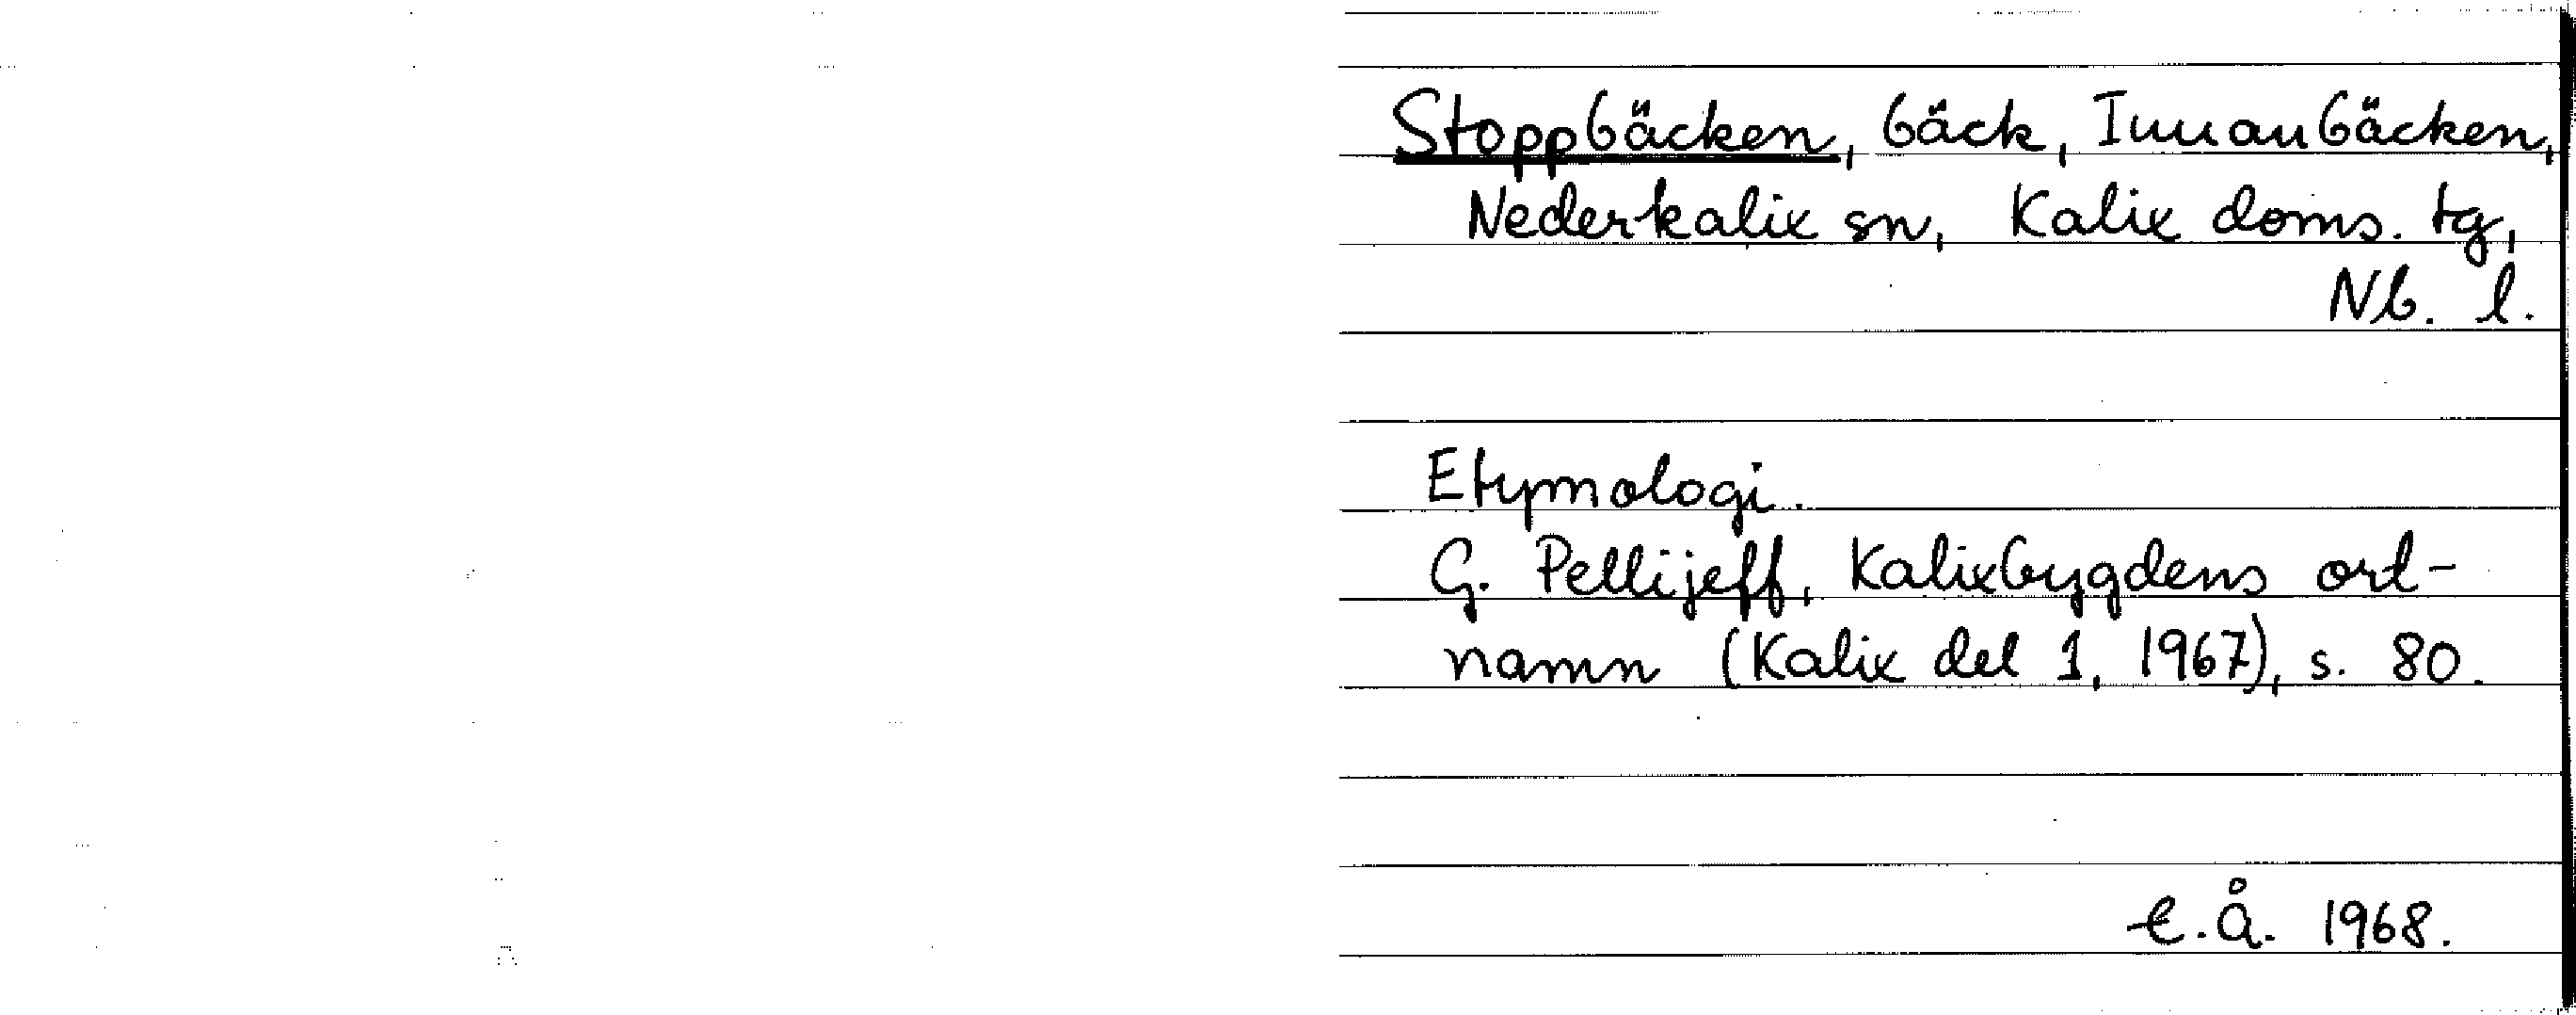 Stoppbäcken, bäck, Innanbäcken,
Nederkalix sn, Kalix doms. tg,
Nb. l.
Etymologi.
G. Pellijeff, Kalixbygdens ort-
namn (Kalix del 1, 1967), s. 80.
E.Å. 1968.